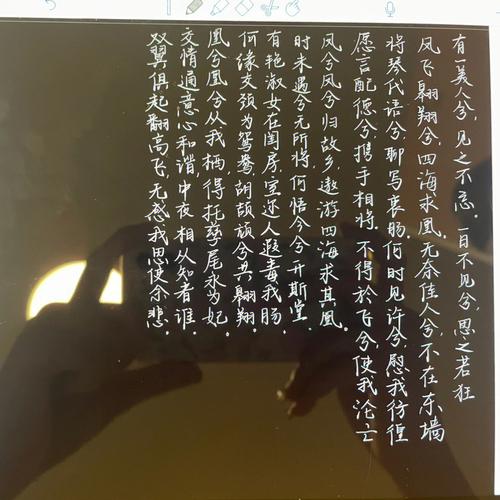 有一美人兮，见之不忘。一日不见兮，思之若狂
凤飞翱翔兮，四海求凰，无奈佳人兮，不在东墙
将琴代语兮，聊写衷肠，何时见许兮，慰我彷徨
愿言配德兮，携手相将，不得於飞兮，使我沦亡
凤兮凤兮归故乡，遨游四海求其凰。
时未遇兮无所将，何悟今兮升斯堂，
有艳淑女在闺房，室迩人遐毒我肠，
何缘交颈为鸳鸯，胡颉颃兮共翱翔。
凰兮凰兮从我栖，得托孳尾永为妃，
交情通意心和谐，中夜相从知者谁，
双翼俱起翻高飞，无感我思使余悲。